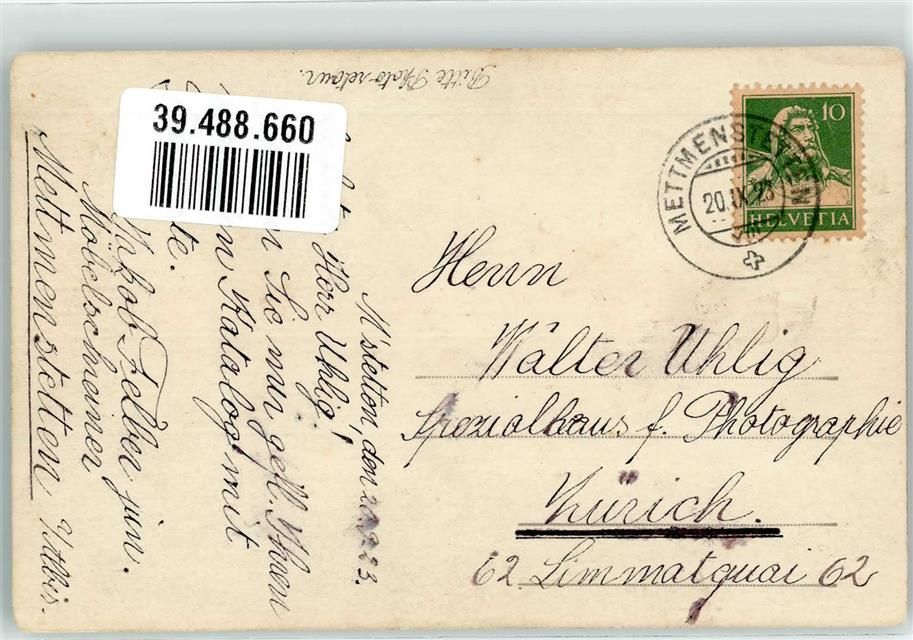 Bitte Photo retour.
39.488.660
10
HELVETIA
METTMENSTETTEN
20.IX.23
M'stetten, den 20.9.23.
Herr Uhlig!
Sie mir gefl. Ihren
Katalog mit
te.
Felber jun.
Möbelschreiner
Mettmenstetten
Herrn
Walter Uhlig
Spezialhaus f. Photographie
Zürich.
62 Limmatquai 62